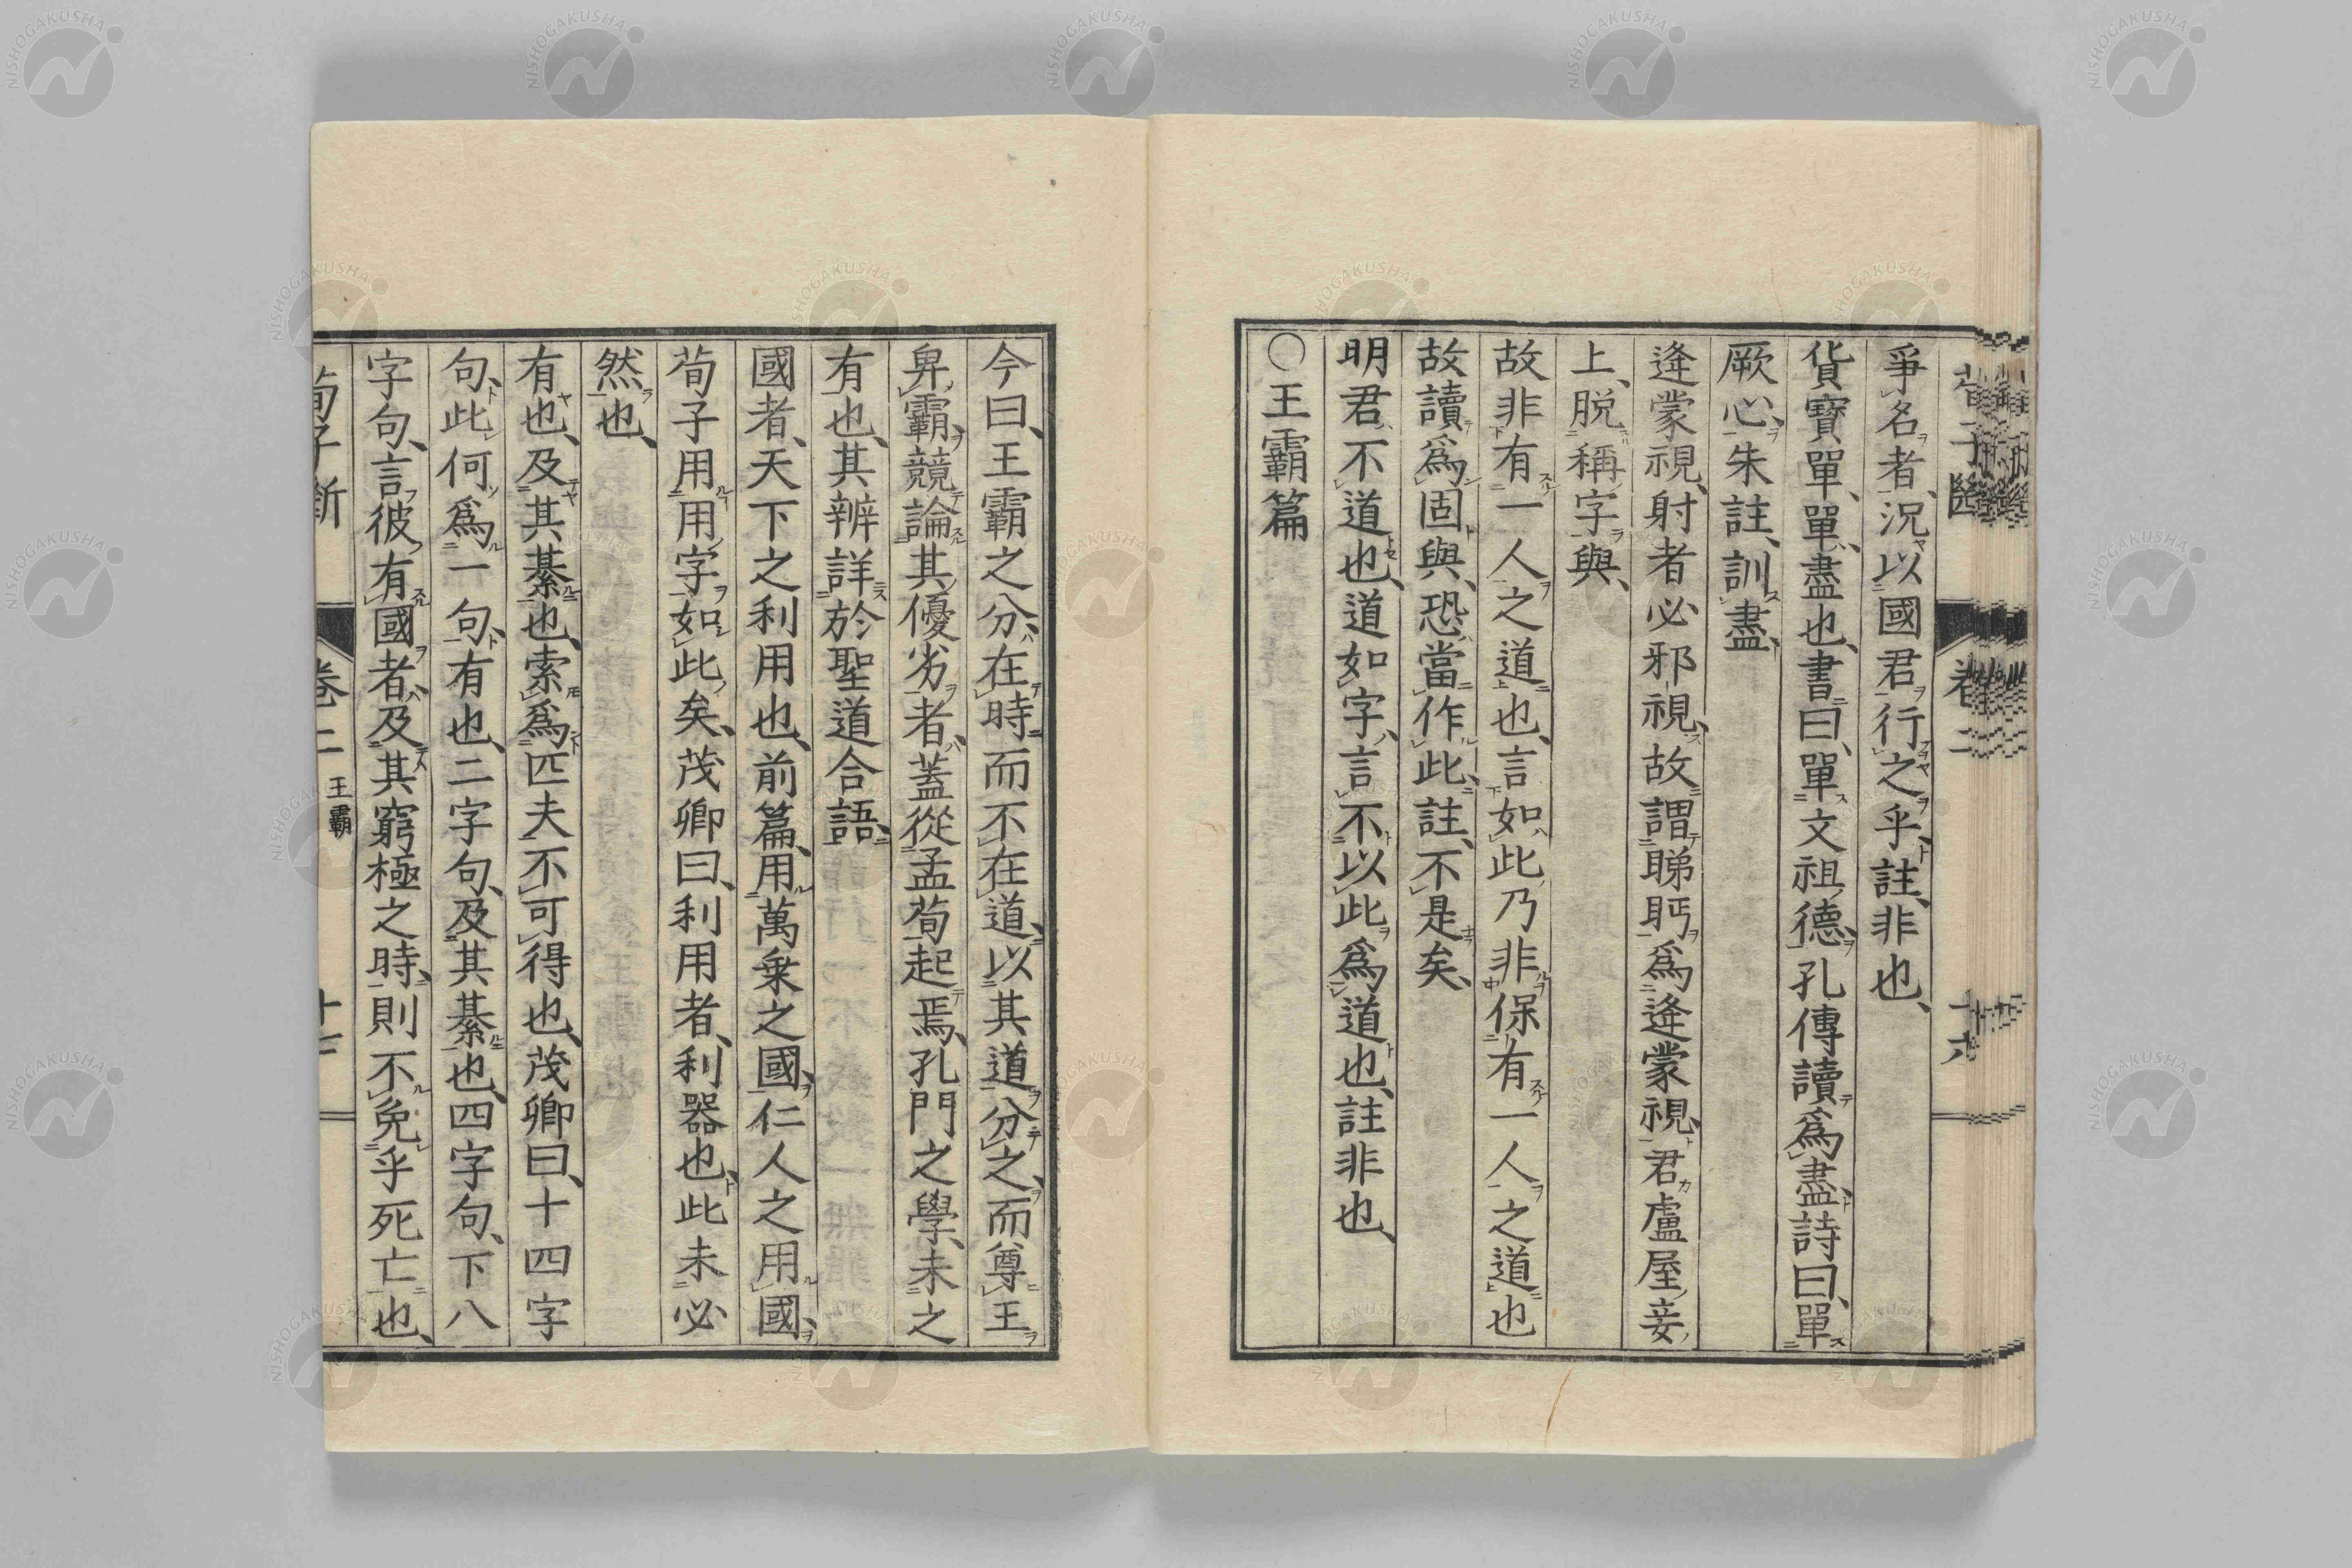 爭名者、況以國君行之乎、註、非也、
貨寶單、單、盡也、書曰、單文祖德、孔傳讀爲盡、詩曰、單
厥心、朱註、訓盡、
逄蒙視、射者必邪視、故謂睇眄爲逄蒙視、君盧屋妾
上、脱稱字與、
故非有一人之道也、言如此乃非保有一人之道也
故讀爲固與、恐當作此、註、不是矣、
明君、不道也、道如字、言不以此爲道也、註非也、
○王霸篇
今曰、王霸之分、在時而不在道、以其道分之、而尊王
卑霸、競論其優劣者、蓋從孟荀起焉、孔門之學、未之
有也、其辨詳於聖道合語、
國者、天下之利用也、前篇、用萬椉之國、仁人之用國、
荀子用用字如此矣、茂卿曰、利用者、利器也、此未必
然也、
有也、及其綦也、索爲匹夫不可得也、茂卿曰、十四字
句、此何爲一句、有也、二字句、及其綦也、四字句、下八
字句、言彼有國者、及其窮極之時、則不免乎死亡也、
荀子斷 卷二 王霸
NISHOGAKUSHA